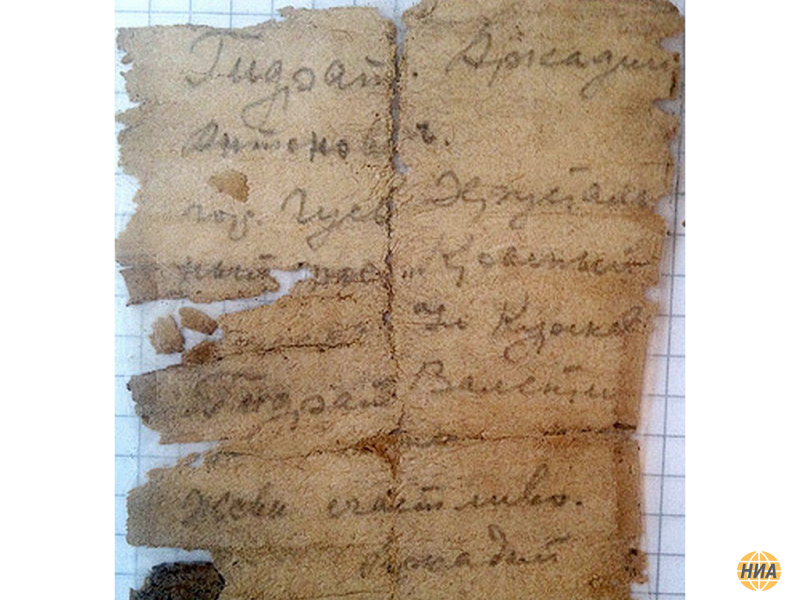 Гидрат. Аркадий
Антонович.
гор. Гусь Хрусталь
ный пос. „Красный
Ул Курков
Гидрат Валенти
живи счастливо.
Аркадий
НИА